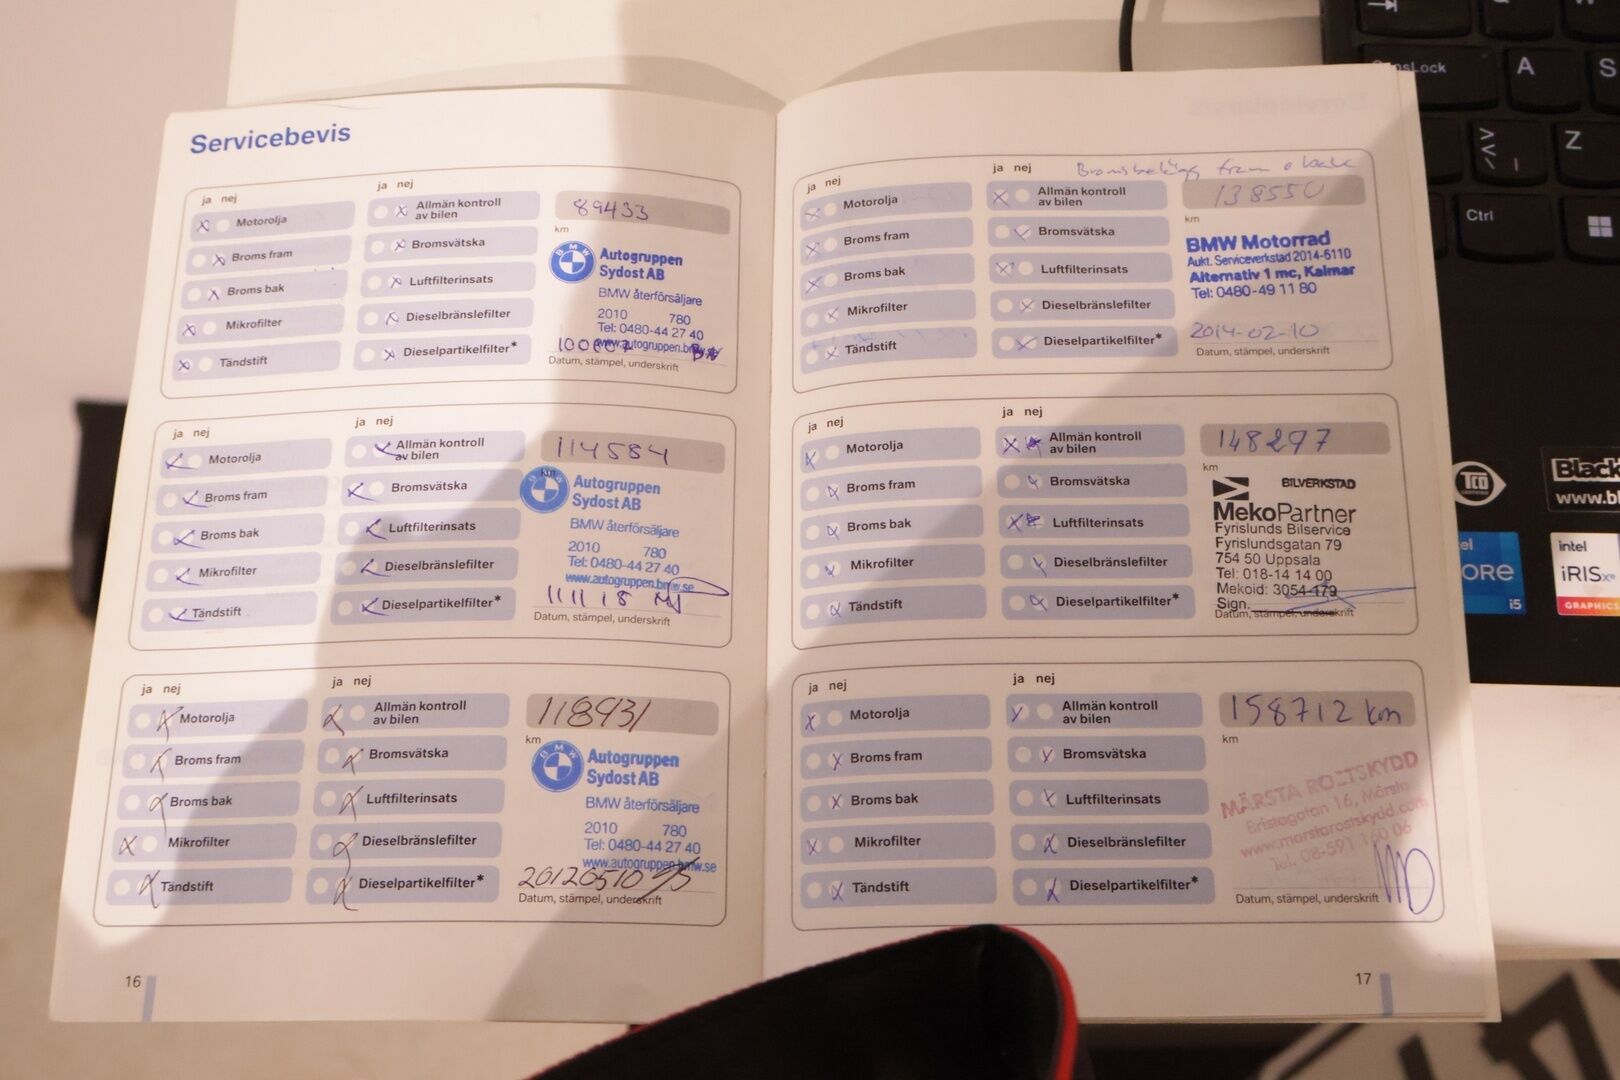 Servicebevis
ja nej
Motorolja
Broms fram
Broms bak
Mikrofilter
Tändstift
ja nej
Allmän kontroll
av bilen
Bromsvätska
Luftfilterinsats
Dieselbränslefilter
Dieselpartikelfilter*
89433
km
BMW
Autogruppen
Sydost AB
BMW återförsäljare
2010 780
Tel: 0480-44 27 40
www.autogruppen.bmw.se
Datum, stämpel, underskrift
ja nej
Motorolja
Broms fram
Broms bak
Mikrofilter
Tändstift
ja nej
Allmän kontroll
av bilen
Bromsvätska
Luftfilterinsats
Dieselbränslefilter
Dieselpartikelfilter*
114584
km
Autogruppen
Sydost AB
BMW återförsäljare
2010 780
Tel: 0480-44 27 40
www.autogruppen.bmw.se
111118
Datum, stämpel, underskrift
ja nej
Motorolja
Broms fram
Broms bak
Mikrofilter
Tändstift
ja nej
Allmän kontroll
av bilen
Bromsvätska
Luftfilterinsats
Dieselbränslefilter
Dieselpartikelfilter*
118931
km
BMW
Autogruppen
Sydost AB
BMW återförsäljare
2010 780
Tel: 0480-44 27 40
www.autogruppen.bmw.se
20120510
Datum, stämpel, underskrift
16
Bromsbelägg fram o bak
ja nej
Motorolja
Broms fram
Broms bak
Mikrofilter
Tändstift
ja nej
Allmän kontroll
av bilen
Bromsvätska
Luftfilterinsats
Dieselbränslefilter
Dieselpartikelfilter*
138550
km
BMW Motorrad
Aukt. Serviceverkstad 2014-6110
Alternativ 1 mc, Kalmar
Tel: 0480-49 11 80
2014-02-10
Datum, stämpel, underskrift
ja nej
Motorolja
Broms fram
Broms bak
Mikrofilter
Tändstift
ja nej
Allmän kontroll
av bilen
Bromsvätska
Luftfilterinsats
Dieselbränslefilter
Dieselpartikelfilter*
148297
km
BILVERKSTAD
MekoPartner
Fyrislunds Bilservice
Fyrislundsgatan 79
754 50 Uppsala
Tel: 018-14 14 00
Mekoid: 3054-179
Sign.
Datum, stämpel, underskrift
ja nej
Motorolja
Broms fram
Broms bak
Mikrofilter
Tändstift
ja nej
Allmän kontroll
av bilen
Bromsvätska
Luftfilterinsats
Dieselbränslefilter
Dieselpartikelfilter*
158712 km
km
MÄRSTA ROSTSKYDD
Bristagatan 16, Märsta
www.marstarostskydd.com
Tel. 08-591 160 06
Datum, stämpel, underskrift
17
CapsLock
A
S
Z
Ctrl
TCO
CERTIFIED
intel
iRISxe
GRAPHICS
i5